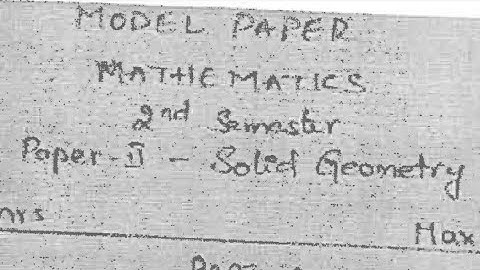 MODEL PAPER
MATHEMATICS
2nd Semester
Paper-II - Solid Geometry
Max